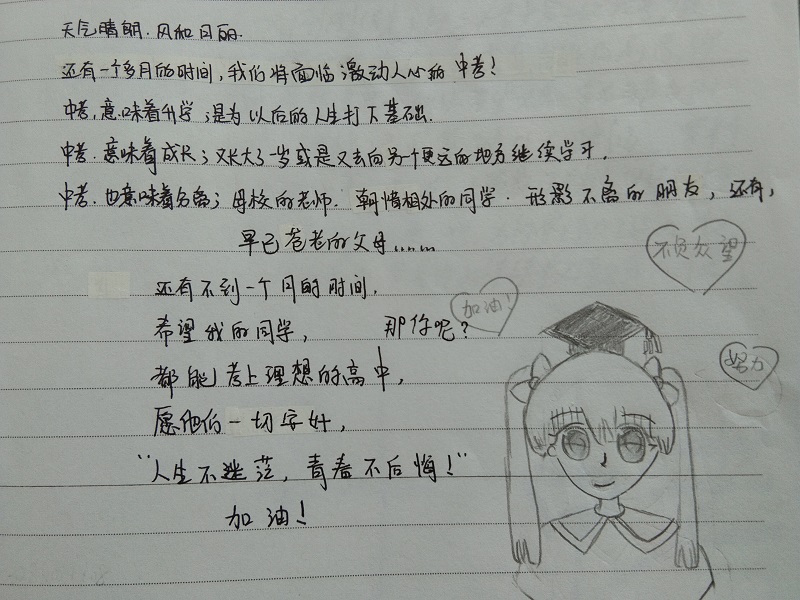 天气晴朗.风和日丽.
还有一个多月的时间,我们将面临激动人心的中考!
中考,意味着升学;是为以后的人生打下基础.
中考.意味着成长;又长大了一岁或是又去向另一个更远的地方继续学习.
中考.也意味着分离;母校的老师.朝惜相处的同学.形影不离的朋友,还有,
早已苍老的父母......
不负众望
还有不到一个月的时间.
加油!
希望我的同学, 那你呢?
努力
都能考上理想的高中,
愿他们一切安好,
"人生不迷茫,青春不后悔!"
加油!